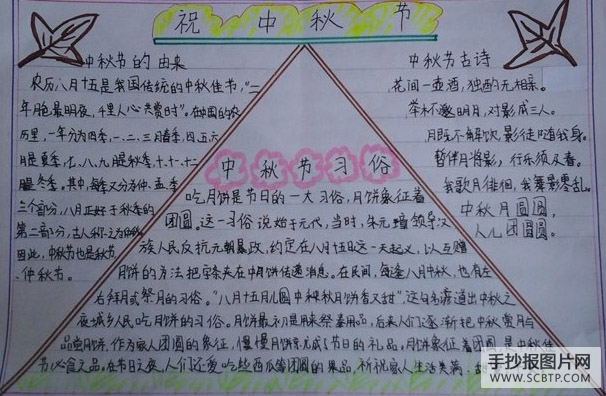 祝中秋节
中秋节的由来
农历八月十五是我国传统的中秋佳节，“二
年月色最明夜，千里人心共赏时”。在中国的农
历里，一年分为四季，一、二、三月春季，四五六
月是夏季，七、八、九月是秋季，十、十一、十二
月是冬季。其中，每季又分为仲、孟、季
三个部分，八月正好于秋季的
第二部分，古人称之为仲秋
因此，中秋节也是秋节
仲秋节。
中秋节古诗
花间一壶酒，独酌无相亲。
举杯邀明月，对影成三人。
月既不解饮，影徒随我身。
暂伴月将影，行乐须及春。
我歌月徘徊，我舞影零乱。
中秋月圆圆，
人儿团圆圆。
中秋节习俗
吃月饼是节日的一大习俗，月饼象征着
团圆。这一习俗说始于元代，当时，朱元璋领导汉
族人民反抗元朝暴政，约定在八月十五这一天起义，以互赠
月饼的方法把字条夹在中月饼传递消息。在民间，每逢八月中秋，也有左
右拜月或祭月的习俗。“八月十五月儿圆中秋月饼香又甜”，这句名谚道出中秋之
夜城乡人民吃月饼的习俗。月饼最初是用来祭奉用品，后来人们逐渐把中秋赏月与
品尝月饼，作为家人团圆的象征，慢慢月饼就成了节日的礼品。月饼象征着团圆是中秋佳
节必食之品，在节日之夜，人们还爱吃些西瓜等团圆的果品，祈祝家人生活美满
手抄报图片网
WWW.SCBTP.COM